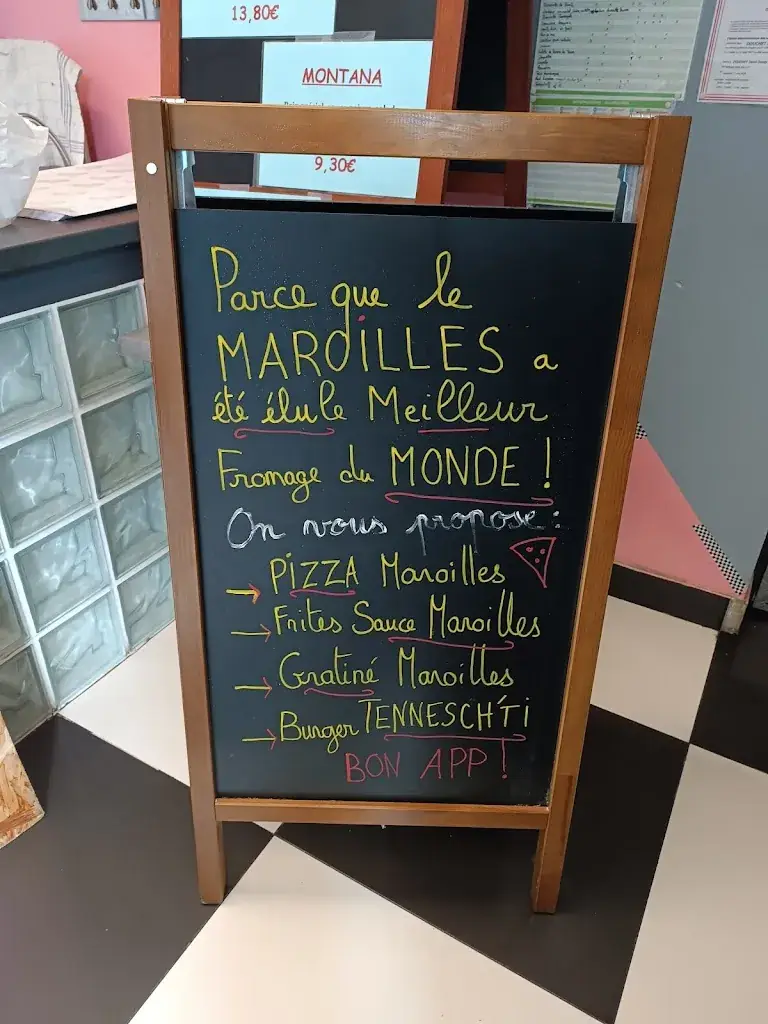 13,80€
MONTANA
9,30€
Parce que le
MAROILLES a
été élu le Meilleur
Fromage du MONDE !
On vous propose :
→ PIZZA Maroilles
→ Frites Sauce Maroilles
→ Gratiné Maroilles
→ Burger TENNESCH'TI
BON APP !